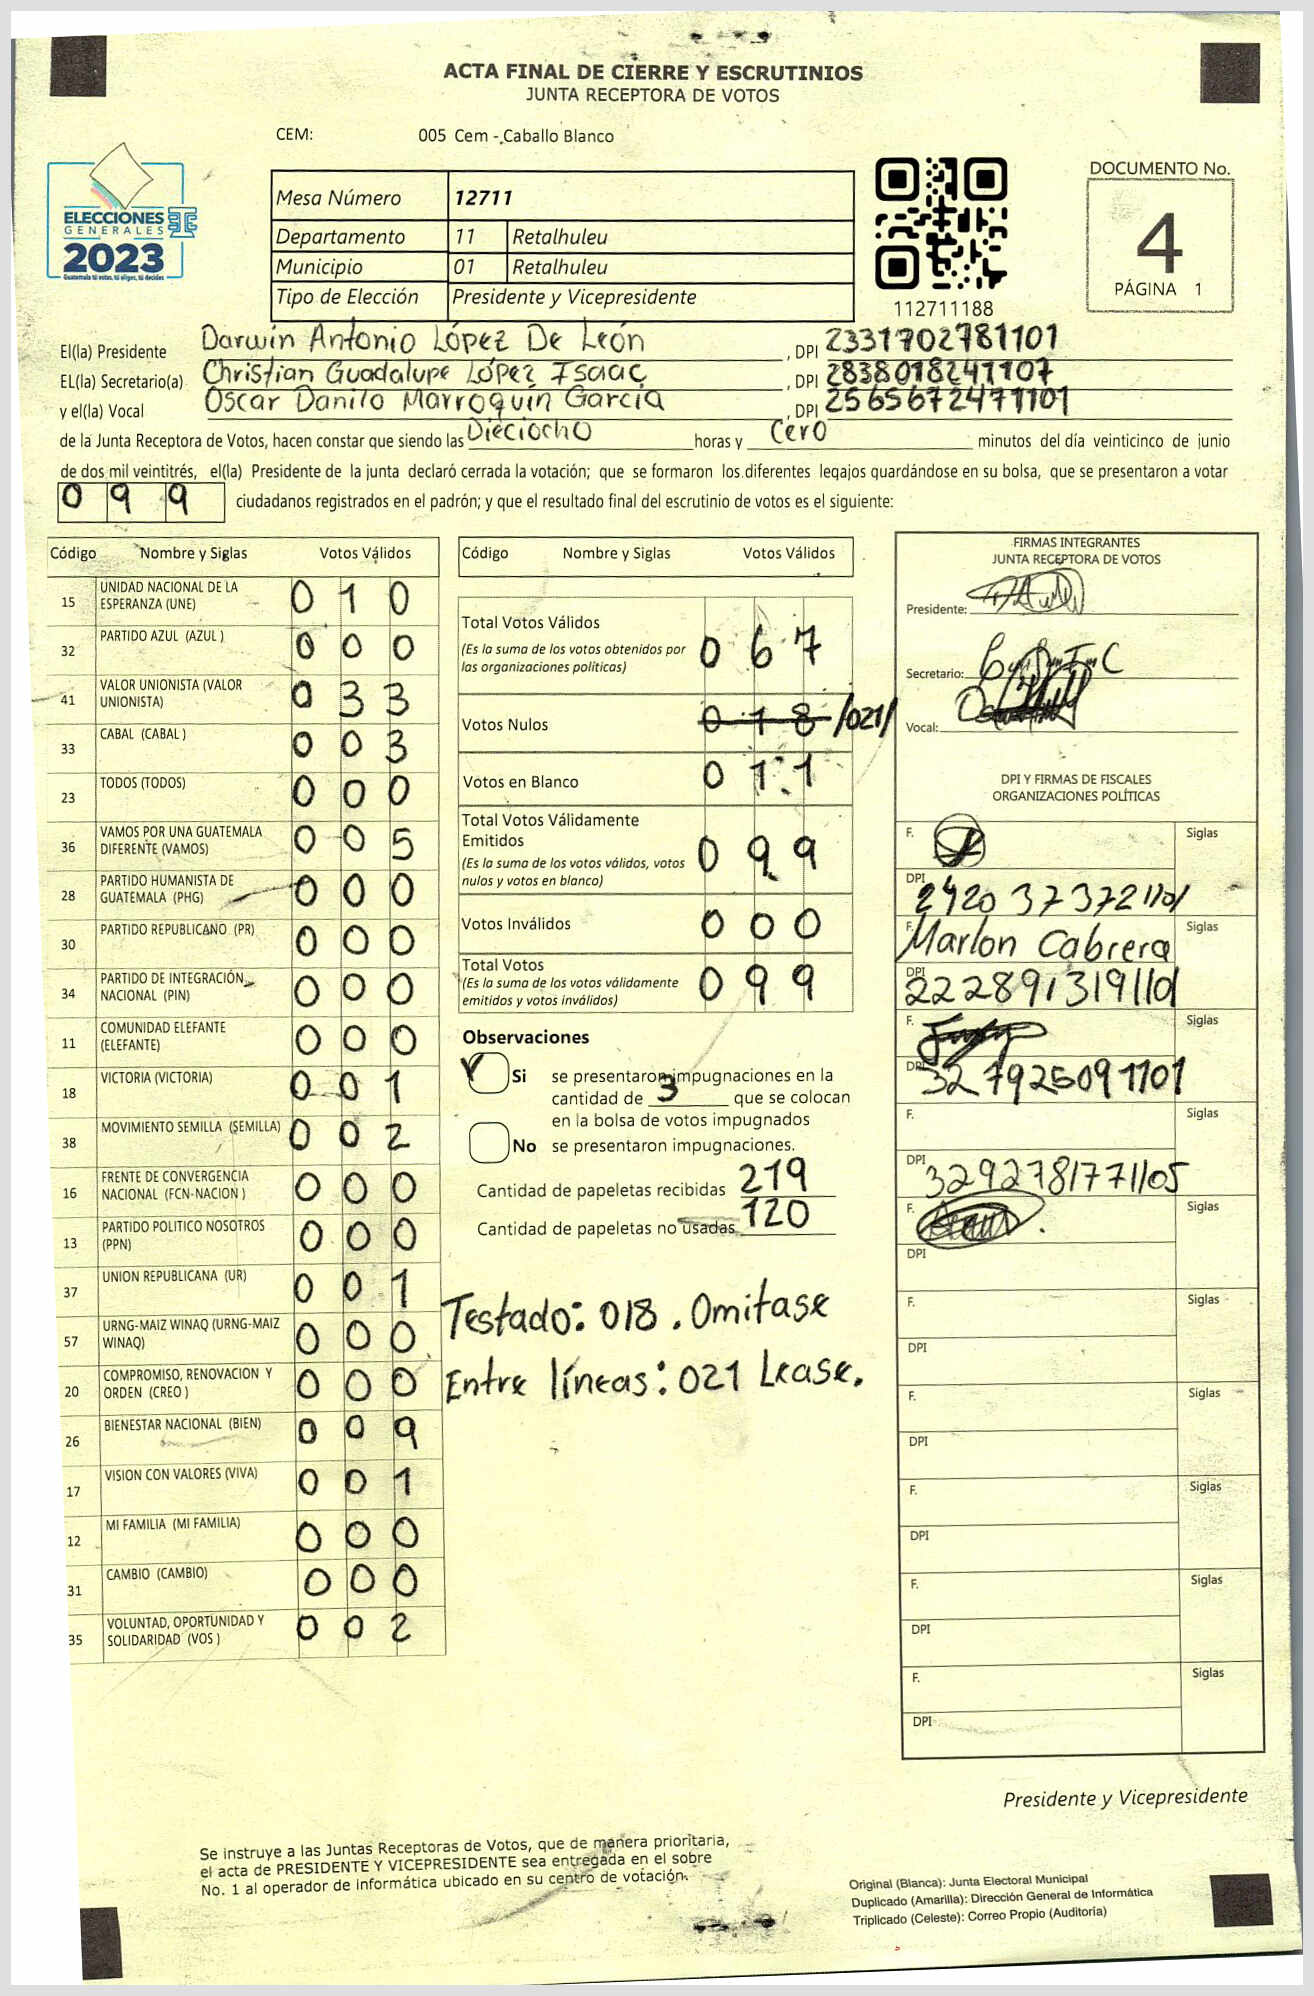 ACTA FINAL DE CIERRE Y ESCRUTINIOS
JUNTA RECEPTORA DE VOTOS
CEM: 005 Cem - Caballo Blanco
ELECCIONES
GENERALES
2023
Guatemala tú votas, tú eliges, tú decides
Mesa Número 12711
Departamento 11 Retalhuleu
Municipio 01 Retalhuleu
Tipo de Elección Presidente y Vicepresidente
112711188
DOCUMENTO No.
4
PÁGINA 1
El(la) Presidente Darwin Antonio López De León , DPI 2331702781101
EL(la) Secretario(a) Christian Guadalupe López Isaac , DPI 2838018241107
y el(la) Vocal Oscar Danilo Marroquín García , DPI 2565672471101
de la Junta Receptora de Votos, hacen constar que siendo las Dieciocho horas y Cero minutos del día veinticinco de junio
de dos mil veintitrés, el(la) Presidente de la junta declaró cerrada la votación; que se formaron los diferentes legajos guardándose en su bolsa, que se presentaron a votar
099 ciudadanos registrados en el padrón; y que el resultado final del escrutinio de votos es el siguiente:
Código Nombre y Siglas Votos Válidos
15 UNIDAD NACIONAL DE LA ESPERANZA (UNE) 0 1 0
32 PARTIDO AZUL (AZUL ) 0 0 0
41 VALOR UNIONISTA (VALOR UNIONISTA) 0 3 3
33 CABAL (CABAL ) 0 0 3
23 TODOS (TODOS) 0 0 0
36 VAMOS POR UNA GUATEMALA DIFERENTE (VAMOS) 0 0 5
28 PARTIDO HUMANISTA DE GUATEMALA (PHG) 0 0 0
30 PARTIDO REPUBLICANO (PR) 0 0 0
34 PARTIDO DE INTEGRACIÓN NACIONAL (PIN) 0 0 0
11 COMUNIDAD ELEFANTE (ELEFANTE) 0 0 0
18 VICTORIA (VICTORIA) 0 0 1
38 MOVIMIENTO SEMILLA (SEMILLA) 0 0 2
16 FRENTE DE CONVERGENCIA NACIONAL (FCN-NACION ) 0 0 0
13 PARTIDO POLITICO NOSOTROS (PPN) 0 0 0
37 UNION REPUBLICANA (UR) 0 0 1
57 URNG-MAIZ WINAQ (URNG-MAIZ WINAQ) 0 0 0
20 COMPROMISO, RENOVACION Y ORDEN (CREO ) 0 0 0
26 BIENESTAR NACIONAL (BIEN) 0 0 9
17 VISION CON VALORES (VIVA) 0 0 1
12 MI FAMILIA (MI FAMILIA) 0 0 0
31 CAMBIO (CAMBIO) 0 0 0
35 VOLUNTAD, OPORTUNIDAD Y SOLIDARIDAD (VOS ) 0 0 2
Código Nombre y Siglas Votos Válidos
Total Votos Válidos 0 6 7
(Es la suma de los votos obtenidos por
las organizaciones políticas)
Votos Nulos 0 1 8 /021/
Votos en Blanco 0 1 1
Total Votos Válidamente
Emitidos 0 9 9
(Es la suma de los votos válidos, votos
nulos y votos en blanco)
Votos Inválidos 0 0 0
Total Votos 0 9 9
(Es la suma de los votos válidamente
emitidos y votos inválidos)
Observaciones
Si se presentaron impugnaciones en la
cantidad de 3 que se colocan
en la bolsa de votos impugnados
No se presentaron impugnaciones.
Cantidad de papeletas recibidas 219
Cantidad de papeletas no usadas 120
Testado: 018 . Omitase
Entre líneas: 021 Lease.
FIRMAS INTEGRANTES
JUNTA RECEPTORA DE VOTOS
Presidente:
Secretario:
Vocal:
DPI Y FIRMAS DE FISCALES
ORGANIZACIONES POLÍTICAS
F. Siglas
DPI 2420 37372 1101
F. Marlon Cabrera Siglas
DPI 2228913191101
F. Siglas
DPI 327925091101
F. Siglas
DPI 3292781771105
F. Siglas
DPI
F. Siglas
DPI
F. Siglas
DPI
F. Siglas
DPI
F. Siglas
DPI
F. Siglas
DPI
Presidente y Vicepresidente
Se instruye a las Juntas Receptoras de Votos, que de manera prioritaria,
el acta de PRESIDENTE Y VICEPRESIDENTE sea entregada en el sobre
No. 1 al operador de informática ubicado en su centro de votación.
Original (Blanca): Junta Electoral Municipal
Duplicado (Amarilla): Dirección General de Informática
Triplicado (Celeste): Correo Propio (Auditoría)